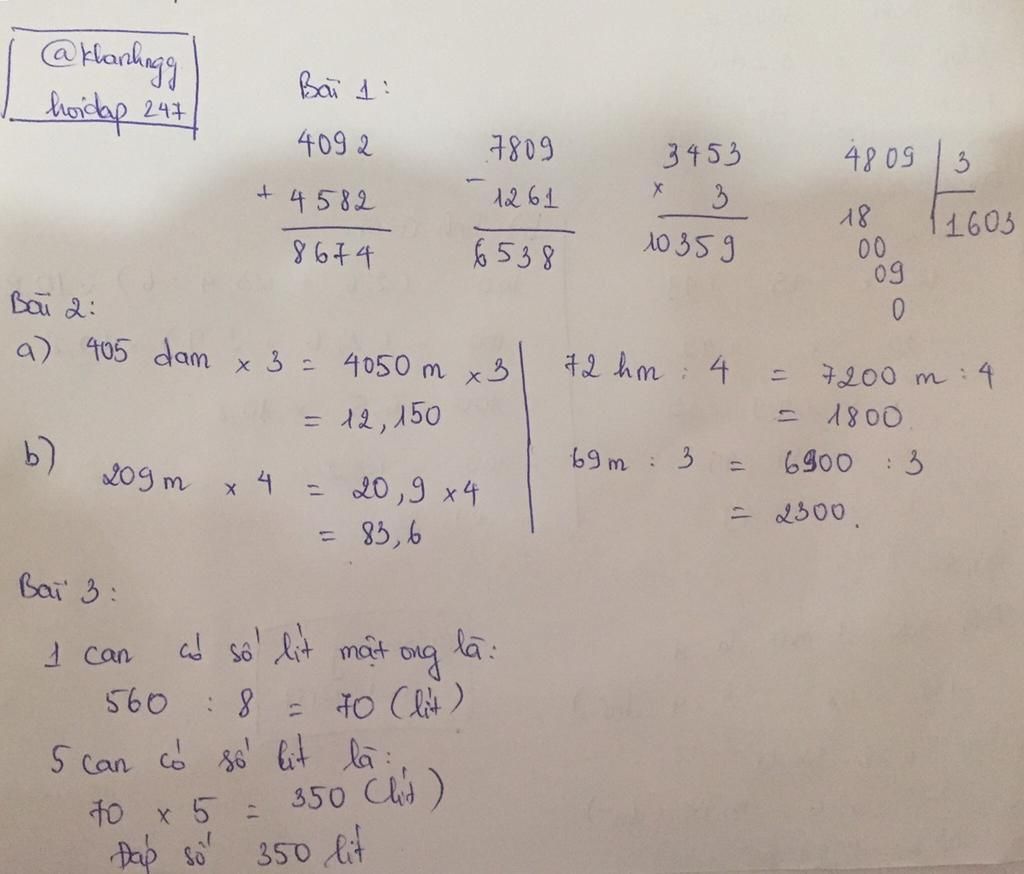 @khanhngg
hoidap 247
Bài 1:
4092
+ 4582
8674
7809
- 1261
6538
3453
x 3
10359
4809 | 3
18 1603
00
09
0
Bài 2:
a) 405 dam x 3 = 4050 m x 3
= 12,150
72 hm : 4 = 7200 m : 4
= 1800
b) 209m x 4 = 20,9 x 4
= 83,6
69m : 3 = 6900 : 3
= 2300.
Bài 3:
1 can có số lít mật ong là:
560 : 8 = 70 (lít)
5 can có số lít là:
70 x 5 = 350 (lít)
Đáp số 350 lít